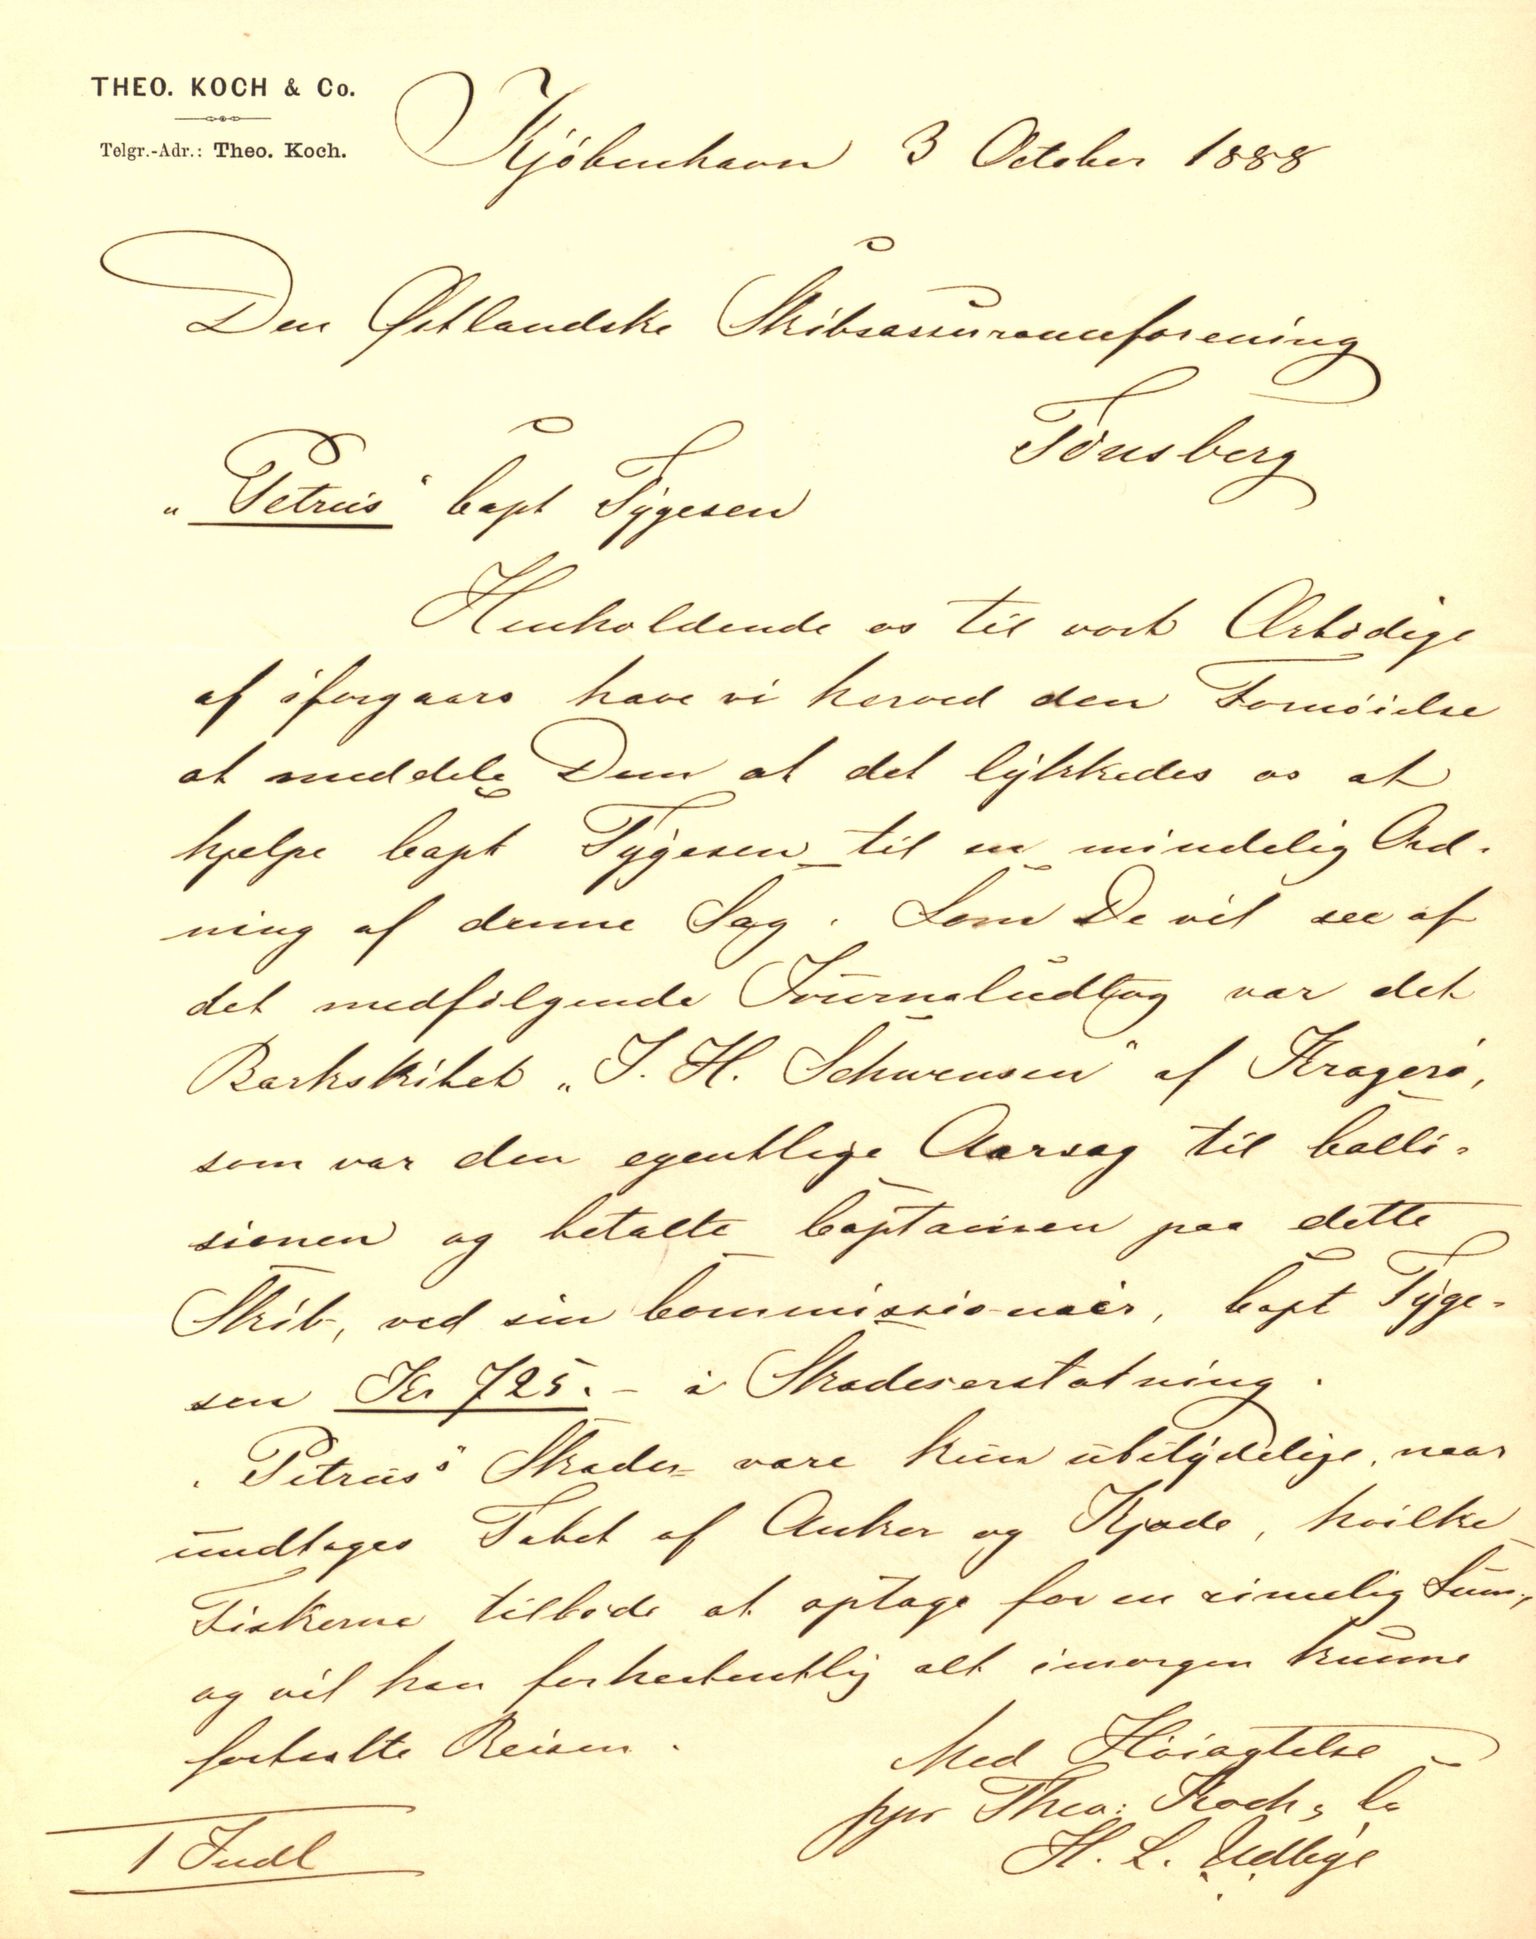 THEO. KOCH & Co.
Telgr.-Adr.: Theo. Koch.
Kjøbenhavn 3 October 1888
Den Østlandske Skibsassuranceforening
Tönsberg
„Petrus“ Capt Tygesen
Henholdende os til vort Ærbödige
af iforgaars have vi herved den Fornöielse
at meddele Dem at det lykkedes os at
hjelpe Capt Tygesen til en mindelig Ord-
ning af denne Sag. Som De vil see af
det medfölgende Journaludtog var det
Barkskibet „J. H. Schwensen“ af Kragerö,
som var den egentlige Aarsag til Colli-
sionen og betalte Captainen paa dette
Skib, ved sin Commissionair, Capt Tyge-
sen Kr 725.- i Skadeserstatning.
„Petrus“s Skader vare kun ubetydelige, naar
undtages Tabet af Anker og Kjæde, hvilke
Fiskerne tilböde at optage for en rimelig Sum,
og vil han forhaabentlig alt imorgen kunne
fortsætte Reisen.
Med Höiagtelse
ppr Theo: Koch & Co
H. L. Udbye
1 Indl